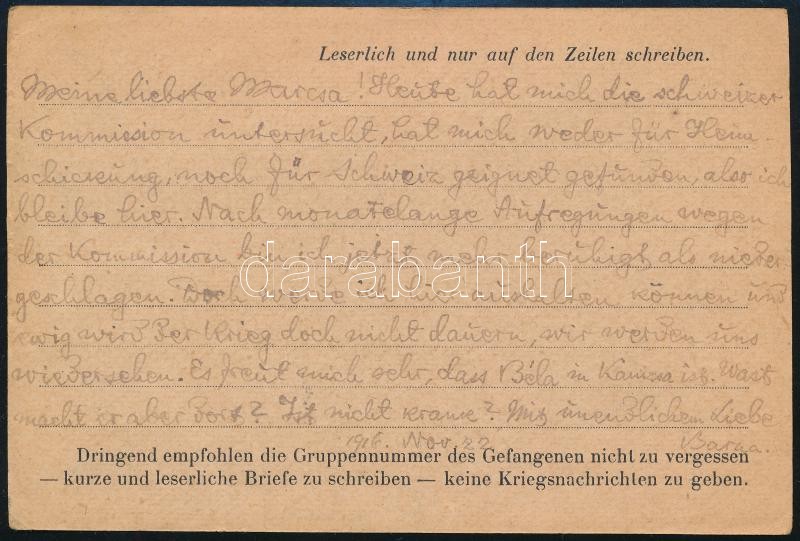 Leserlich und nur auf den Zeilen schreiben.
Meine liebste Marcsa! Heute hat mich die schweizer
Kommission untersucht, hat mich weder für Heim-
schickung, noch für Schweiz geignet gefunden, also ich
bleibe hier. Nach monatelange Aufregungen wegen
der Kommission bin ich jetzt mehr beruhigt als nieder
geschlagen. Doch werde ich hier aushalten können und
ewig wird der Krieg doch nicht dauern, wir werden uns
wiedersehen. Es freut mich sehr, dass Béla in Kanizsa ist. Wast
macht er aber dort? Ist nicht krank? Mit unendlichem Liebe
1916. Nov. 22. Barna.
Dringend empfohlen die Gruppennummer des Gefangenen nicht zu vergessen
— kurze und leserliche Briefe zu schreiben — keine Kriegsnachrichten zu geben.
darabanth